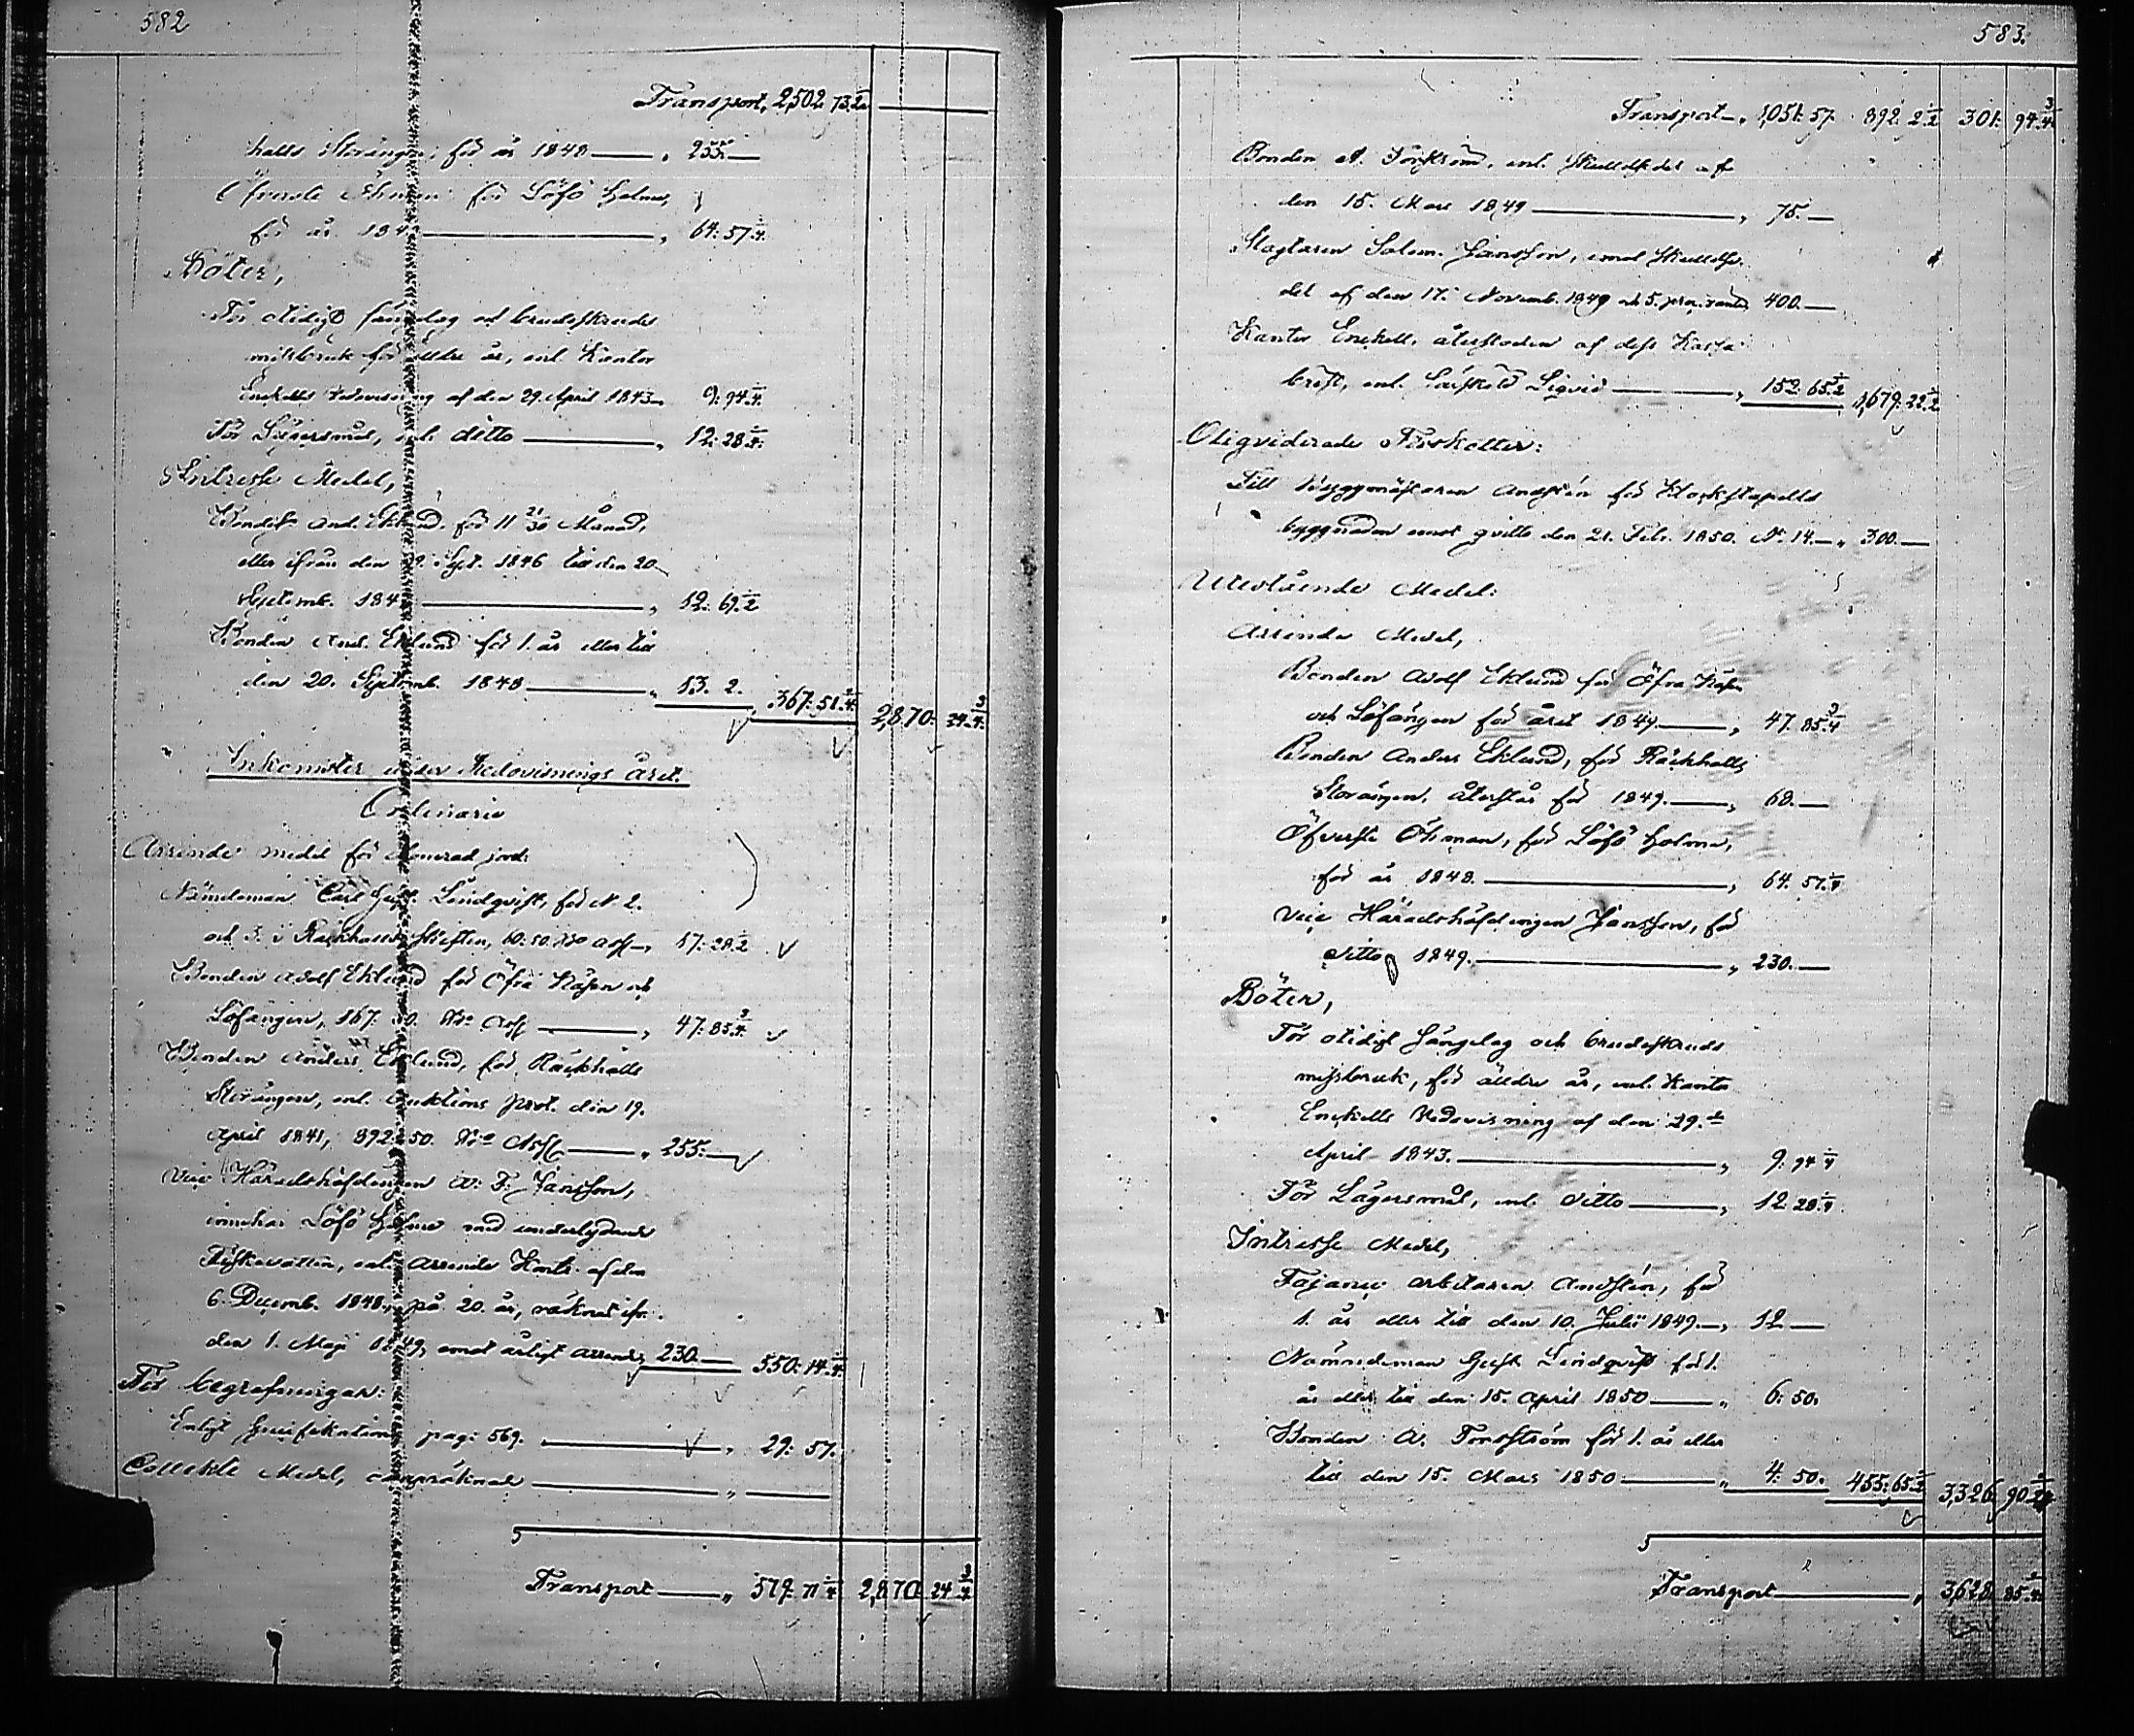 582
Transport, 2,502 73.½
halls Storängen för år 1848 — „ 255.—
Öfverste Öhman för Löfö holme,
för år 184 — „ 64: 57.¼
Böter,
För otidigt sänglag och brudeskruds
missbruk för äldre år, enl. Kantor
Enckells Redovisning af den 29. April 1843 „ 9: 94.¼
För Lägersmål, enl. ditto — „ 12: 28.¼
Intresse Medel,
And. Eklund för 11 21/30 Månad,
eller ifrån den 29. Sept. 1846 till den 20
Septemb. 184 — „ 12: 69.½
Bonden And. Eklund för 1. år eller till
den 20. Septemb. 1848 — „ 13. 2. 367: 51.¼ 2,870: 24.¾
Inkomster under Redovisnings året.
Ordinarie
Arrende medel för jord:
Nämndeman Carl Gust. Lindqvist, för N 2.
och 3. i Räckhalls skiften, 60: 50. Rdr Ass „ 17: 28.½
Bonden Adolf Eklund för Öfra Näsen och
Löfängen, 167: Ass — „ 47: 85.¾
Bonden Anders Eklund, för Räckhalls
Storängen, enl. auktions prot. den 19.
April 1841, 892: 50. Ass — „ 255:—
Vice Häradshöfdingen A. F. Jansson,
innehar Löfö Holme med underlydande
Fiskevatten, enl. Arrende Kontr. af den
6. Decemb. 1848, på 20. år, räknat ifr.
den 1. Maji 1849, emot årligt arrende 230.— 550: 14.¼
För begrafningar:
Enligt Specifikation pag: 569. — „ 29: 57.
Collekte Medel, — „ —
Transport — „ 579: 71¼ 2,870. 24¾
583.
Transport — „ 1,051: 57. 892. 2½ 301: 94.¾
Bonden A. Forsström, enl. Skuldsedel af
den 15. Mars 1849 — „ 75.—
Slagtaren Salom. Jansson, emot Skuldse-
del af den 17. Novemb. 1849 och 5. pro. ränta 400.—
Kantor Enckell, återstoden af dess Kassa
brist, enl. Särskild Liqvid — „ 152: 65.½ 1,679: 22.½
Oliqviderade Förskotter:
Till Byggmästaren Andstén för Klockstapels
byggnaden emot qvitto den 21. Febr. 1850. N: 14.— „ 300.—
Utestående Medel:
Arrende Medel,
Bonden Adolf Eklund för Öfra Näsen
och Löfängen för året 1849. — „ 47. 85.¾
Bonden Anders Eklund, för Räckhalls
Storängen, återstår för 1849. — „ 68.—
Öfverste Öhman, för Löfö Holme,
för år 1848. — „ 64. 57.¼
Vice Häradshöfdingen Jansson, för
ditto 1849. — „ 230.—
Böter,
För otidigt sängelag och brudeskruds
missbruk, för äldre år, enl. Kantor
Enckells Redovisning af den 29.de
April 1843. — „ 9: 94 ¼
För Lägersmål, enl. ditto — „ 12. 28.¼
Intresse Medel,
Fajance arbetaren Andstén, för
1. år eller till den 10. Julii 1849.— „ 12 —
Nämndeman Gust. Lindqvist för 1.
år eller till den 15. April 1850 — „ 6: 50.
Bonden A. Forsström för 1. år eller
till den 15. Mars 1850 — „ 4: 50. 455: 65.¼ 3,326: 90
Transport — „ 3,628. 85.